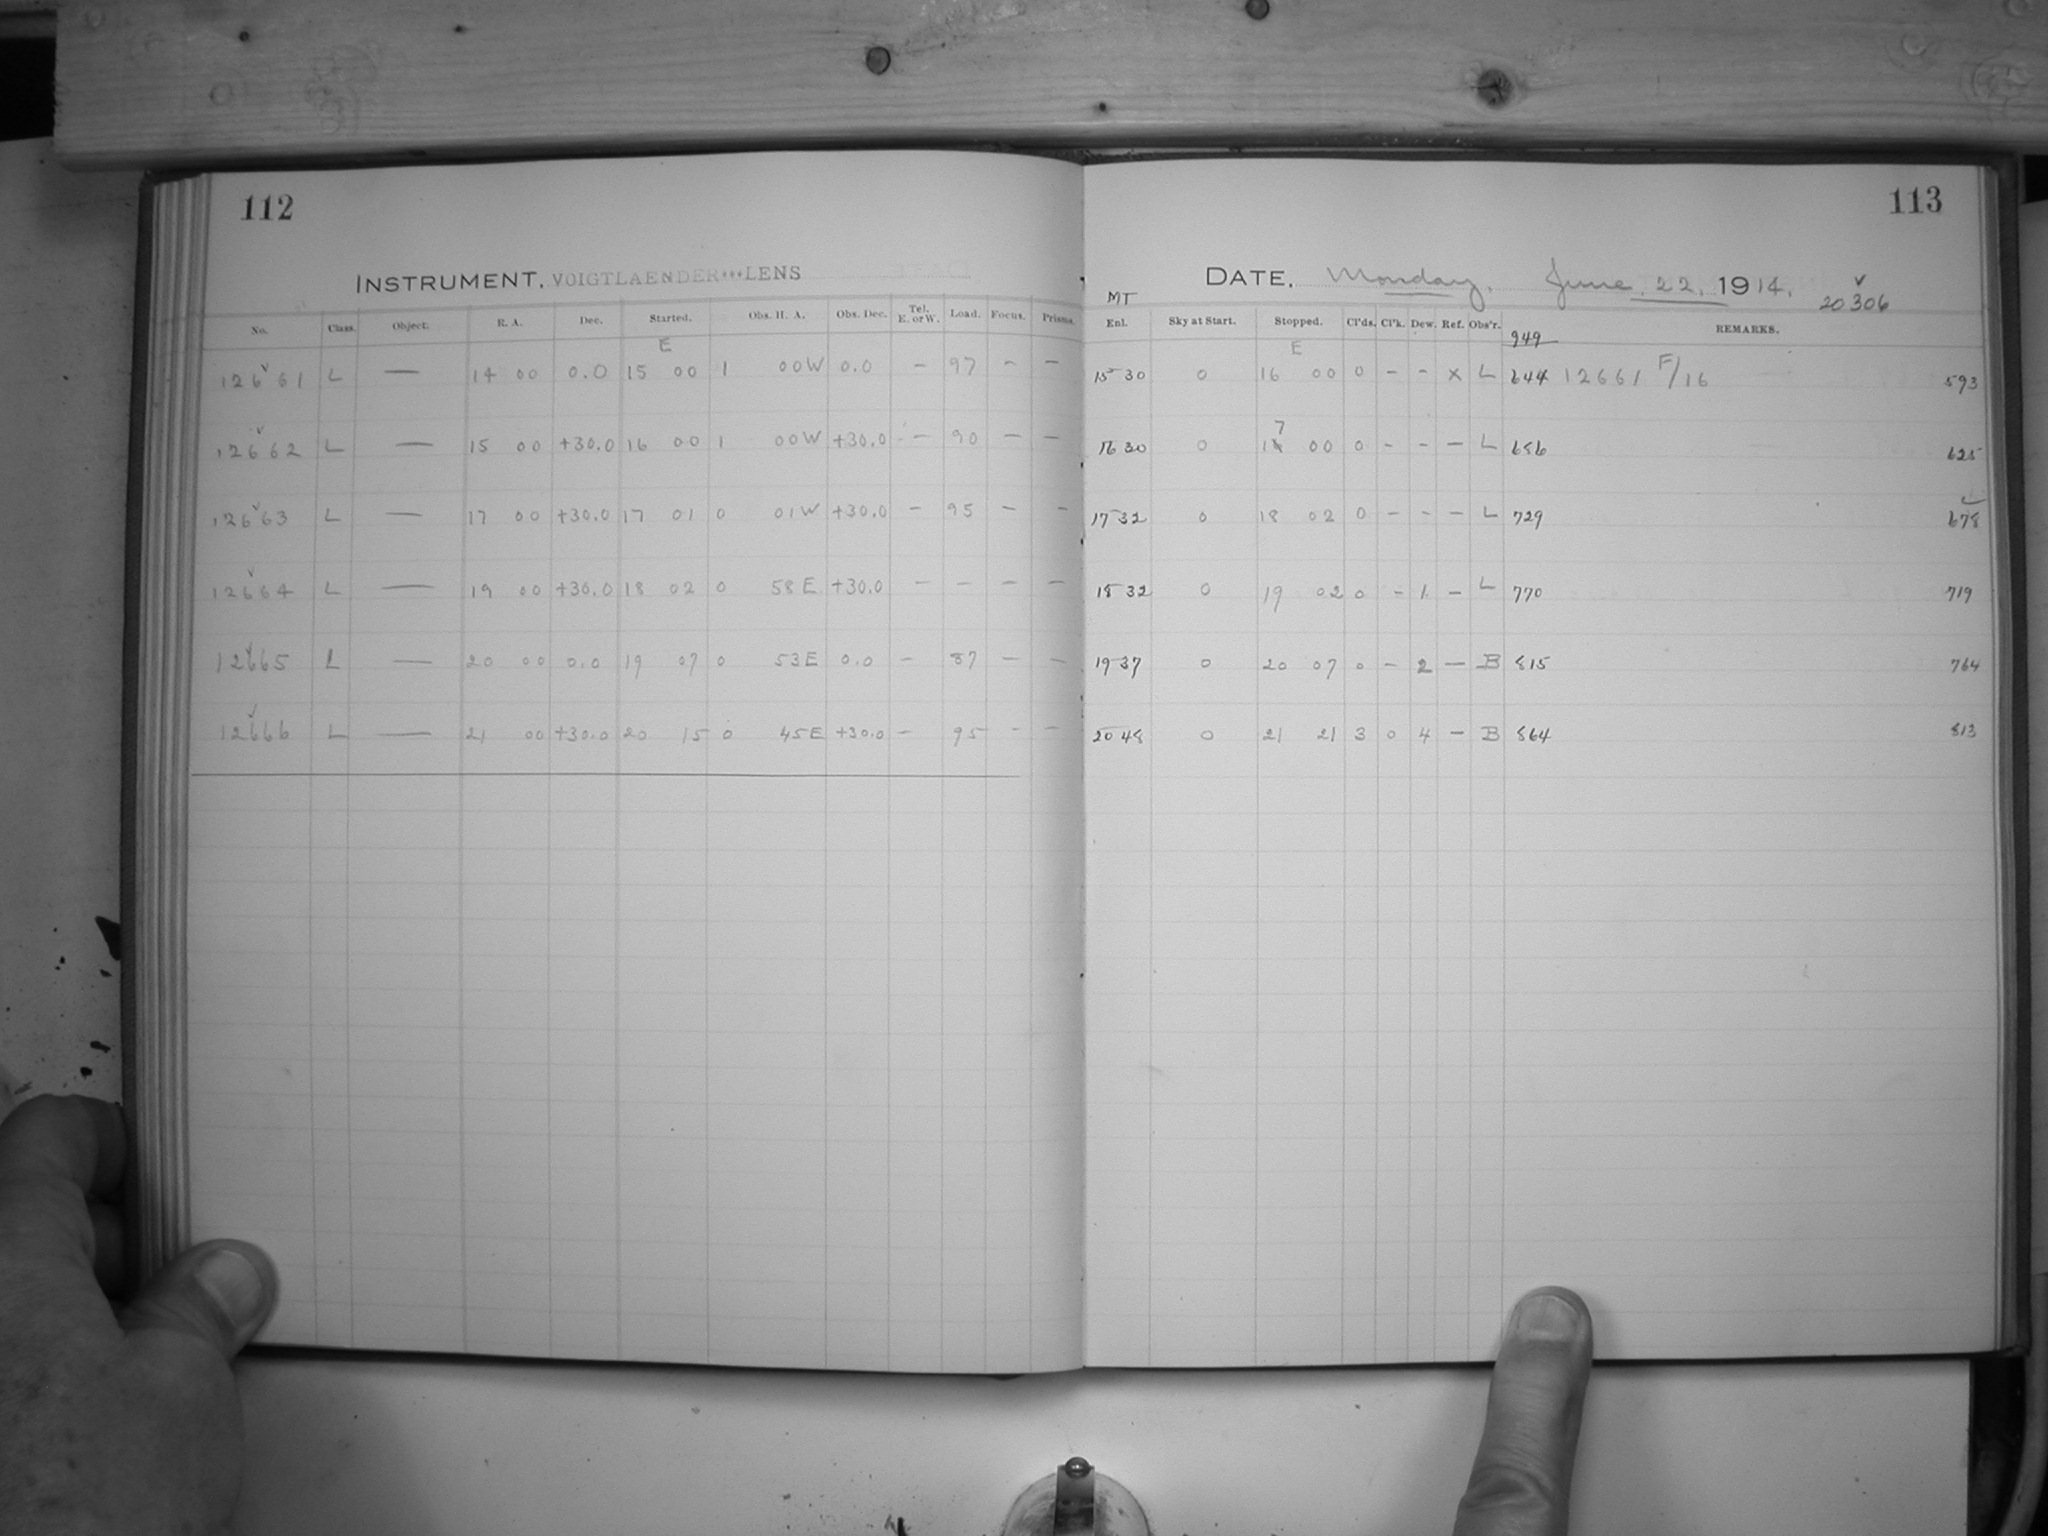 112
INSTRUMENT. VOIGTLAENDER•••LENS
No. Class. Object. R. A. Dec. Started. Obs. H. A. Obs. Dec. Tel. E. or W. Load. Focus. Prisms.
E
12661 L — 14 00 0.0 15 00 1 00W 0.0 — 97 — —
12662 L — 15 00 +30.0 16 00 1 00W +30.0 — 90 — —
12663 L — 17 00 +30.0 17 01 0 01W +30.0 — 95 — —
12664 L — 19 00 +30.0 18 02 0 58E +30.0 — — — —
12665 L — 20 00 0.0 19 07 0 53E 0.0 — 87 — —
12666 L — 21 00 +30.0 20 15 0 45E +30.0 — 95 — —
113
DATE. Monday, June 22, 1914.
20306
MT
Enl. Sky at Start. Stopped. Cl'ds. Cl'k. Dew. Ref. Obs'r. REMARKS.
949
E
15 30 0 16 00 0 — — x L 644 12661 F/16 593
7
16 30 0 1 00 0 — — — L 686 625
17 32 0 18 02 0 — — — L 729 678
18 32 0 19 02 0 — 1 — L 770 719
19 37 0 20 07 0 — 2 — B 815 764
20 48 0 21 21 3 0 4 — B 864 813